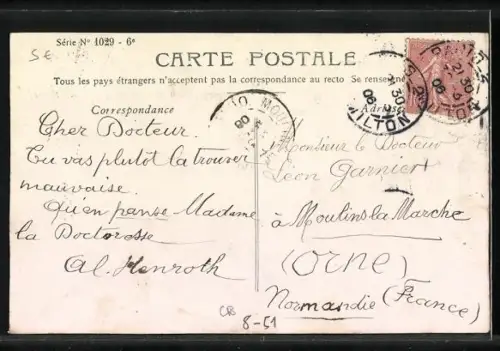 Série N° 1029 - 6e
SE
CARTE POSTALE
Tous les pays étrangers n'acceptent pas la correspondance au recto Se
Correspondance
Cher Docteur.
Tu vas plutôt la trouver
mauvaise.
Qu'en panse Madame
la Doctoresse
Al. Henroth
Monsieur le Docteur
Léon Garnier
à Moulins la Marche
(Orne)
Normandie (France)
MILTON
21 30
06
MOULINS
CB
8-51